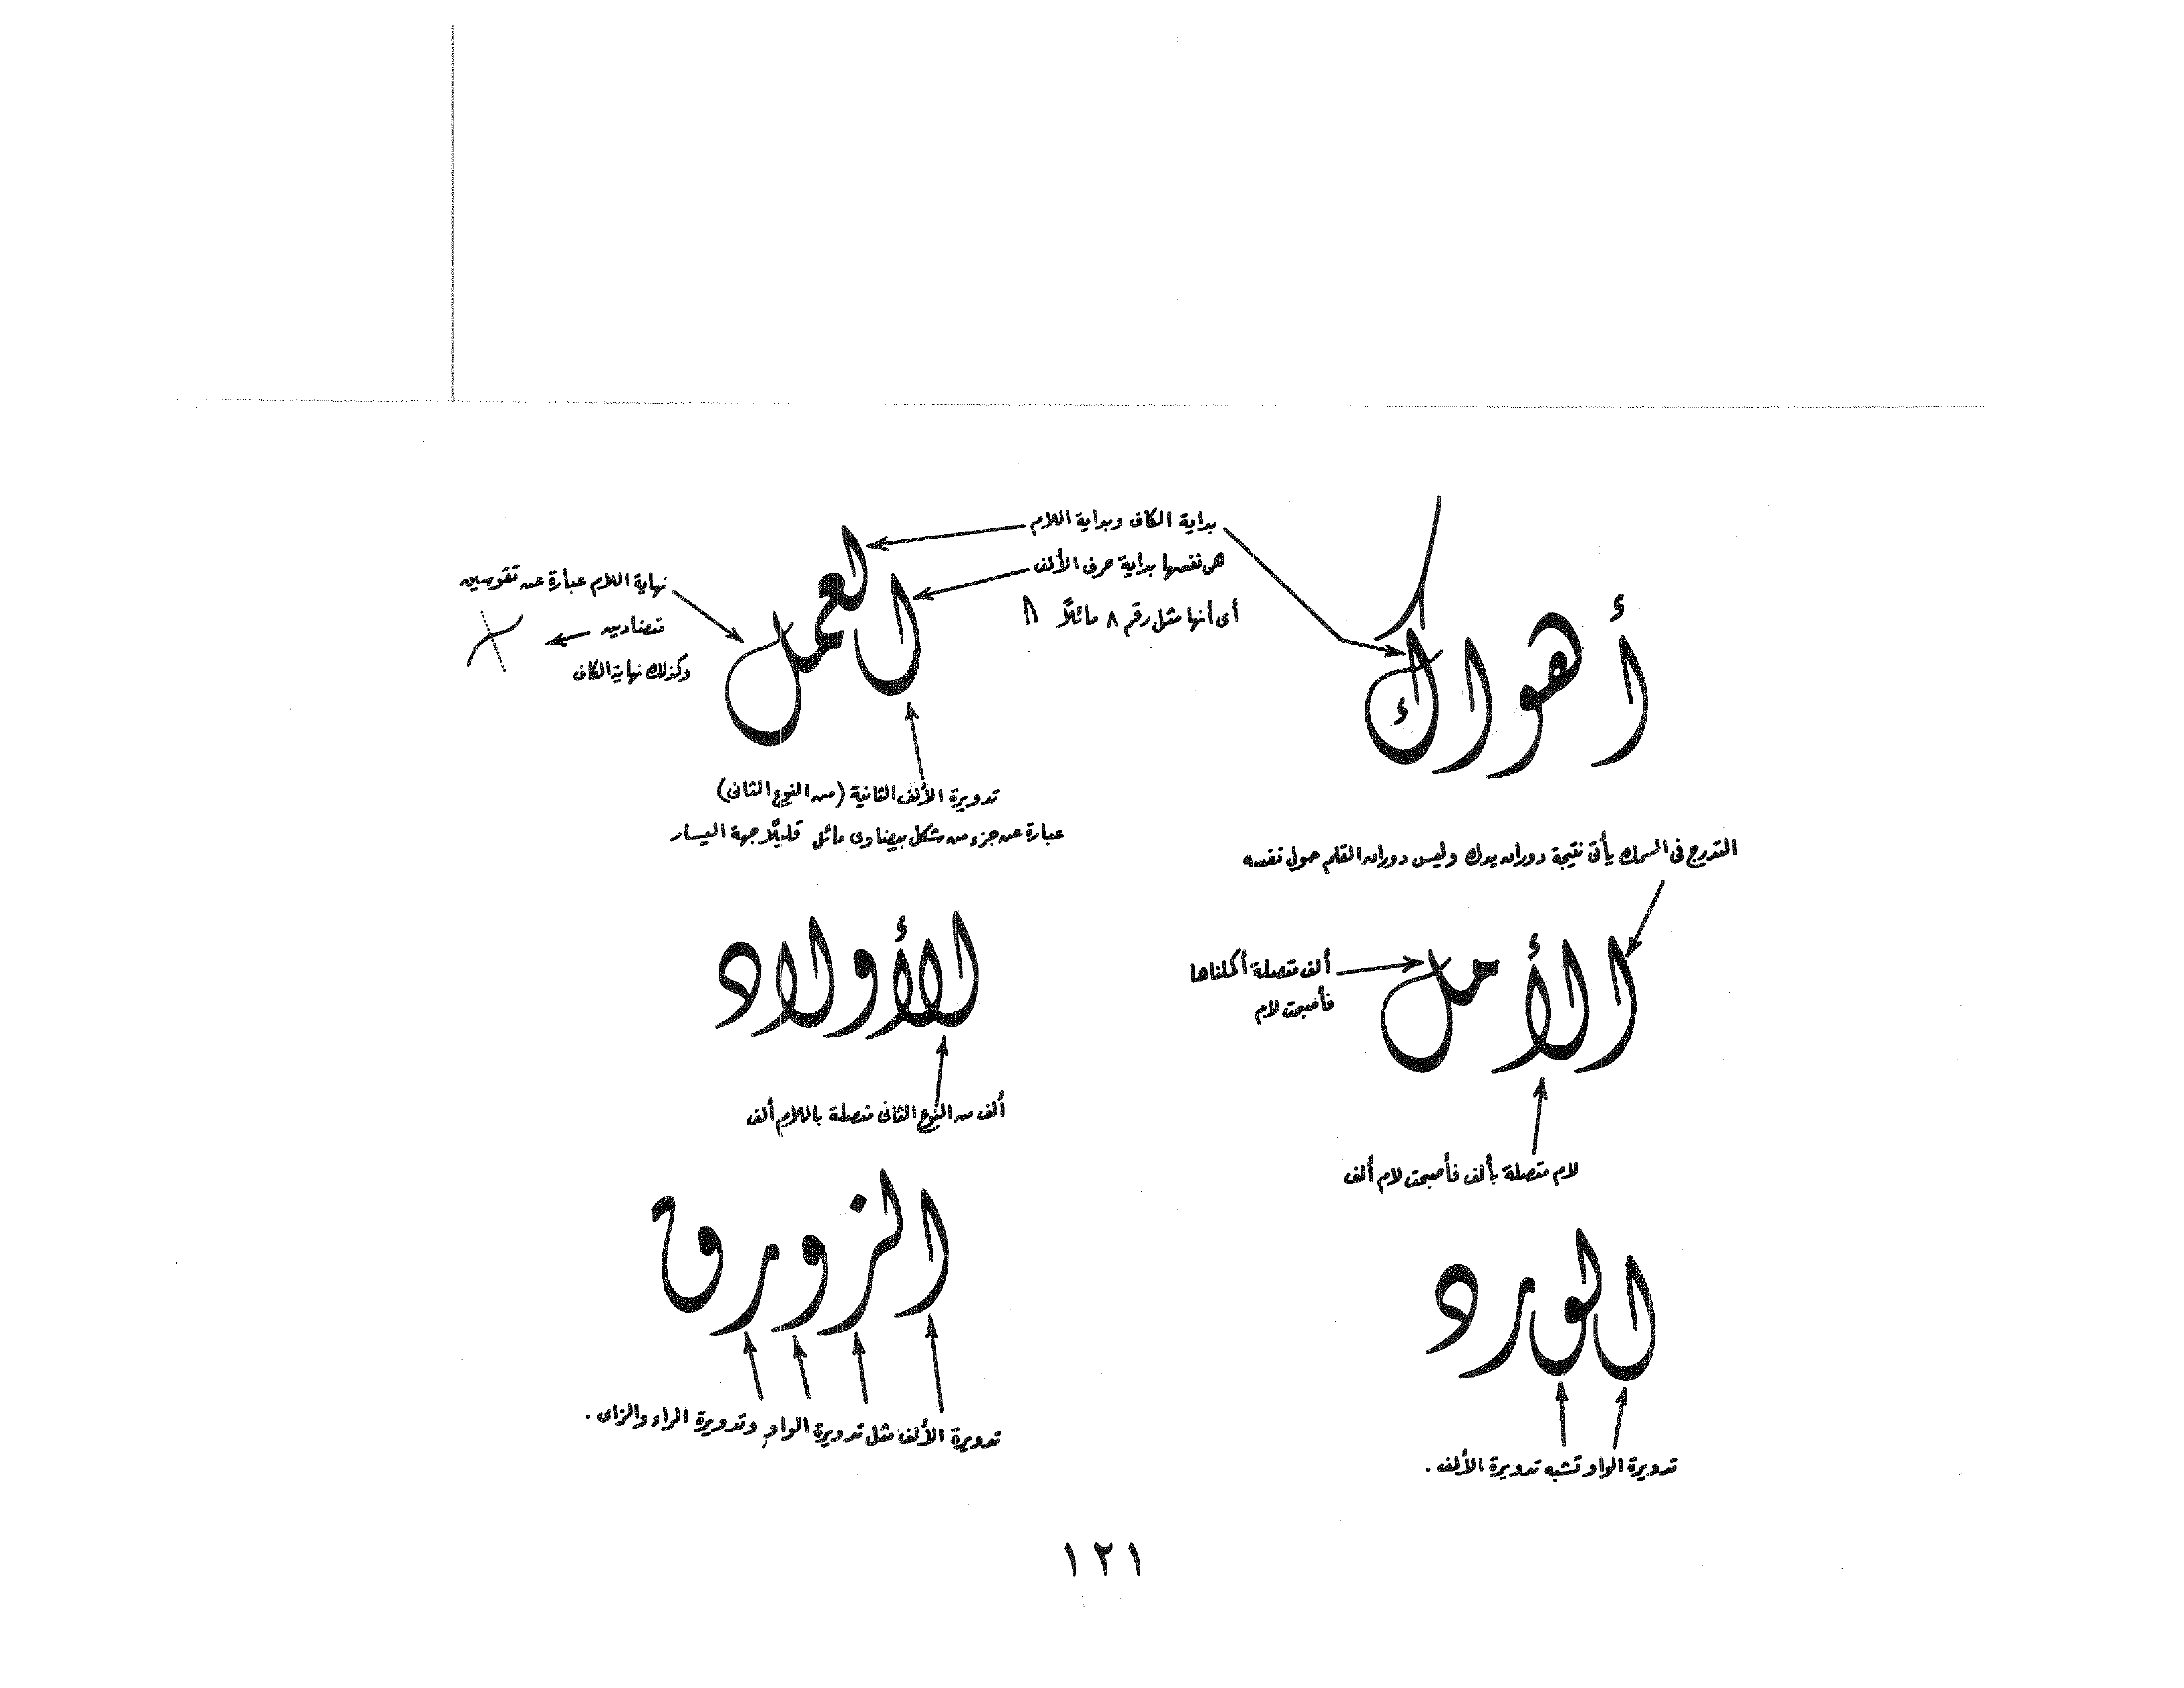 بداية الكاف وبداية اللام
هى نفسها بداية حرف الألف
أى أنها مثل رقم ٨ مائلاً
أهواك
العمل
نهاية اللام عبارة عن تقوسين
متضادين
وكذلك نهاية الكاف
تدويرة الألف الثانية (من النوع الثانى)
عبارة عن جزء من شكل بيضاوى مائل قليلًا جهة اليسار
التدرج فى السمك يأتى نتيجة دوران يدك وليس دوران القلم حول نفسه
الأمل
ألف متصلة أكملناها
فأصبحت لام
لام متصلة بألف فأصبحت لام ألف
الأولاد
ألف من النوع الثانى متصلة باللام ألف
الورد
تدويرة الواو تشبه تدويرة الألف .
الزورق
تدويرة الألف مثل تدويرة الواو وتدويرة الراء والزاى .
١٢١